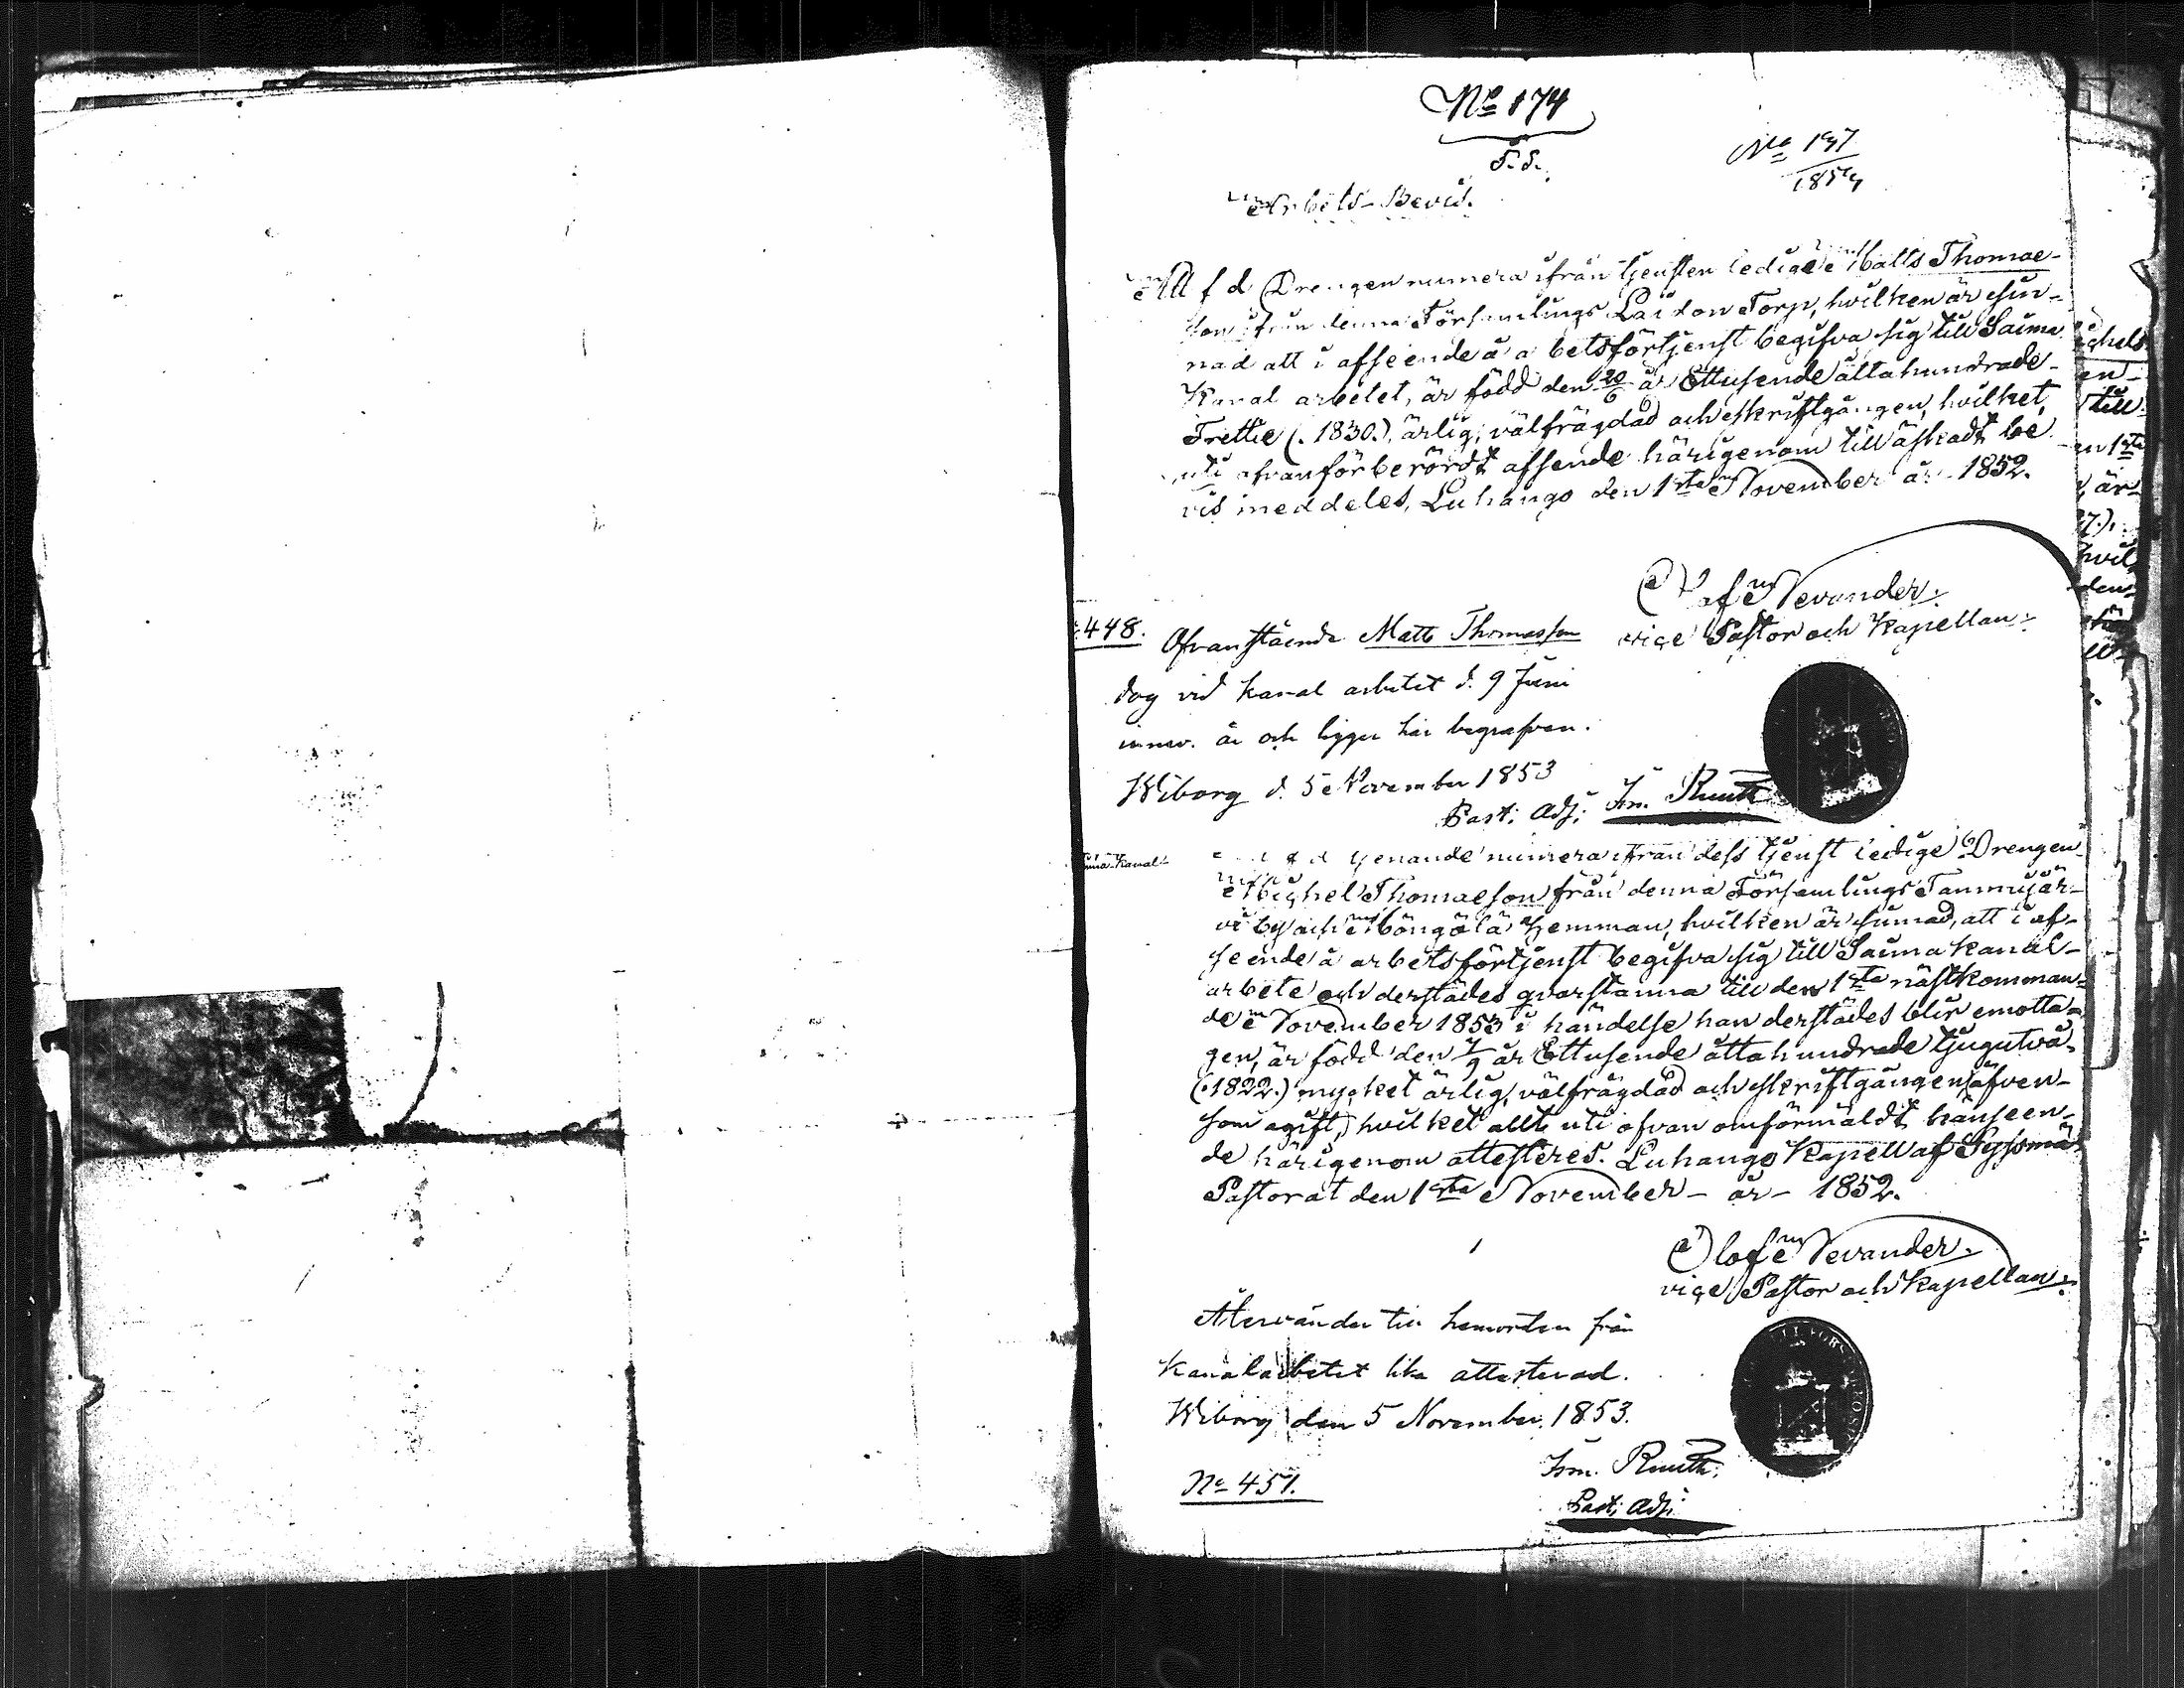 No 174
S. d.
No 197
1854
Arbets-Bevis.
Att f d Drengen numera ifrån tjensten ledige Matts Thomae-
son ifrån denna Församlings Laiton Torp, hvilken är sin-
nad att i afseende å a betsförtjenst begifva sig till Saima
Kanal arbetet, är född den 20/6 år Ettusende åttahundrade-
Trettie (. 1830.), ärlig, välfrägdad och skriftgången, hvilket,
uti ofvanförberördt afseende härigenom till äskadt be
vis meddeles, Luhango den 1sta November år 1852.
Olof Nevander.
vice Pastor och Kapellan.
448. Ofvanstående Matts Thomasson
dog vid kanal arbetet d. 9 Juni
innev. år och ligger här begrafven.
Wiborg d. 5 November 1853
Past. Adj. Im. Ruuth
Kanal-
genande numera ifrån dess tjenst ledige Drengen
Michel Thomaeson från denna Församlings Tammijär-
vi by och Böngälä Hemman, hvilken är sinnad, att i af-
seende å arbetsförtjenst begifva sig till Saima kanal-
arbete och derstädes qvarstanna till den 1sta nästkomman-
de November 1853 i händelse han derstädes blir emotta-
gen, är född den 7/9 år Ettusende åttahundrade tjugutvå.
(.1822.) mycket ärlig, välfrägdad och skriftgången, äfven-
som ogift, hvilket allt uti ofvan omförmäldt hänseen-
de härigenom attesteres. Luhango Kapell af Sysmä
Pastorat den 1sta November - år - 1852.
Olof Nevander.
vice Pastor och Kapellan.
Återvänder till hemorten från
Kanalarbetet lika attesterad.
Wiborg den 5 November 1853.
Im. Ruuth.
No 451.
Past. Adj.